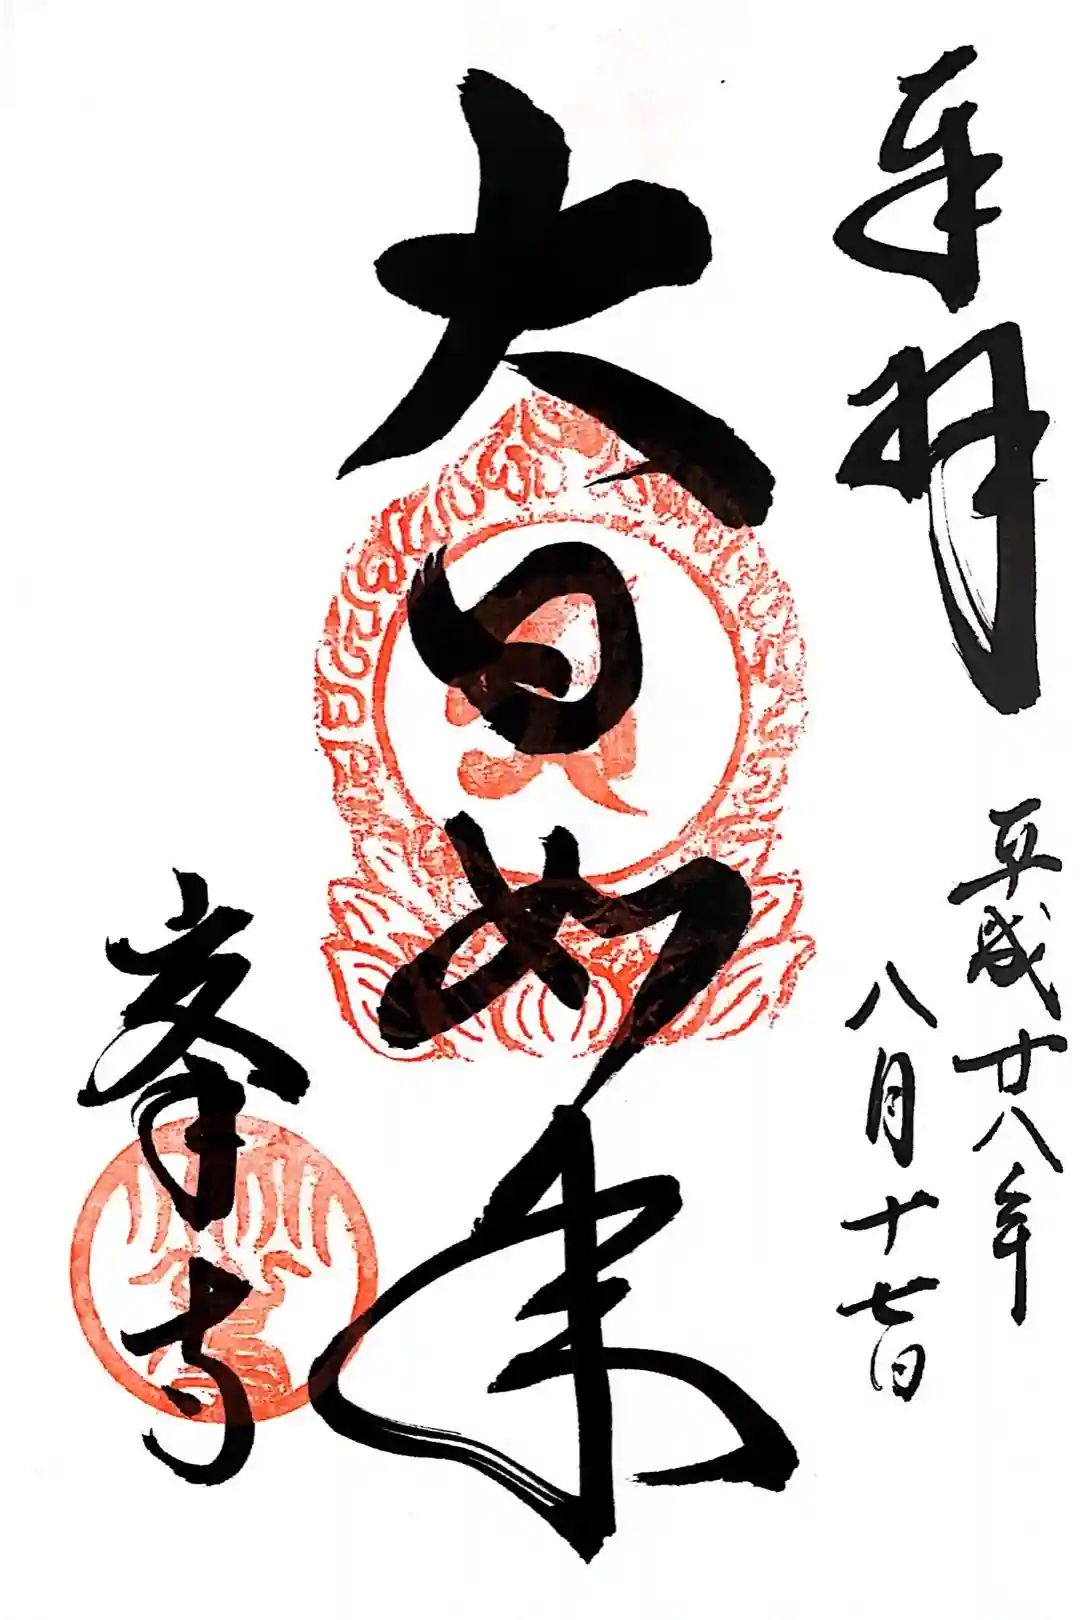 奉拜
平成廿八年
八月十七日
大日如来
峯寺